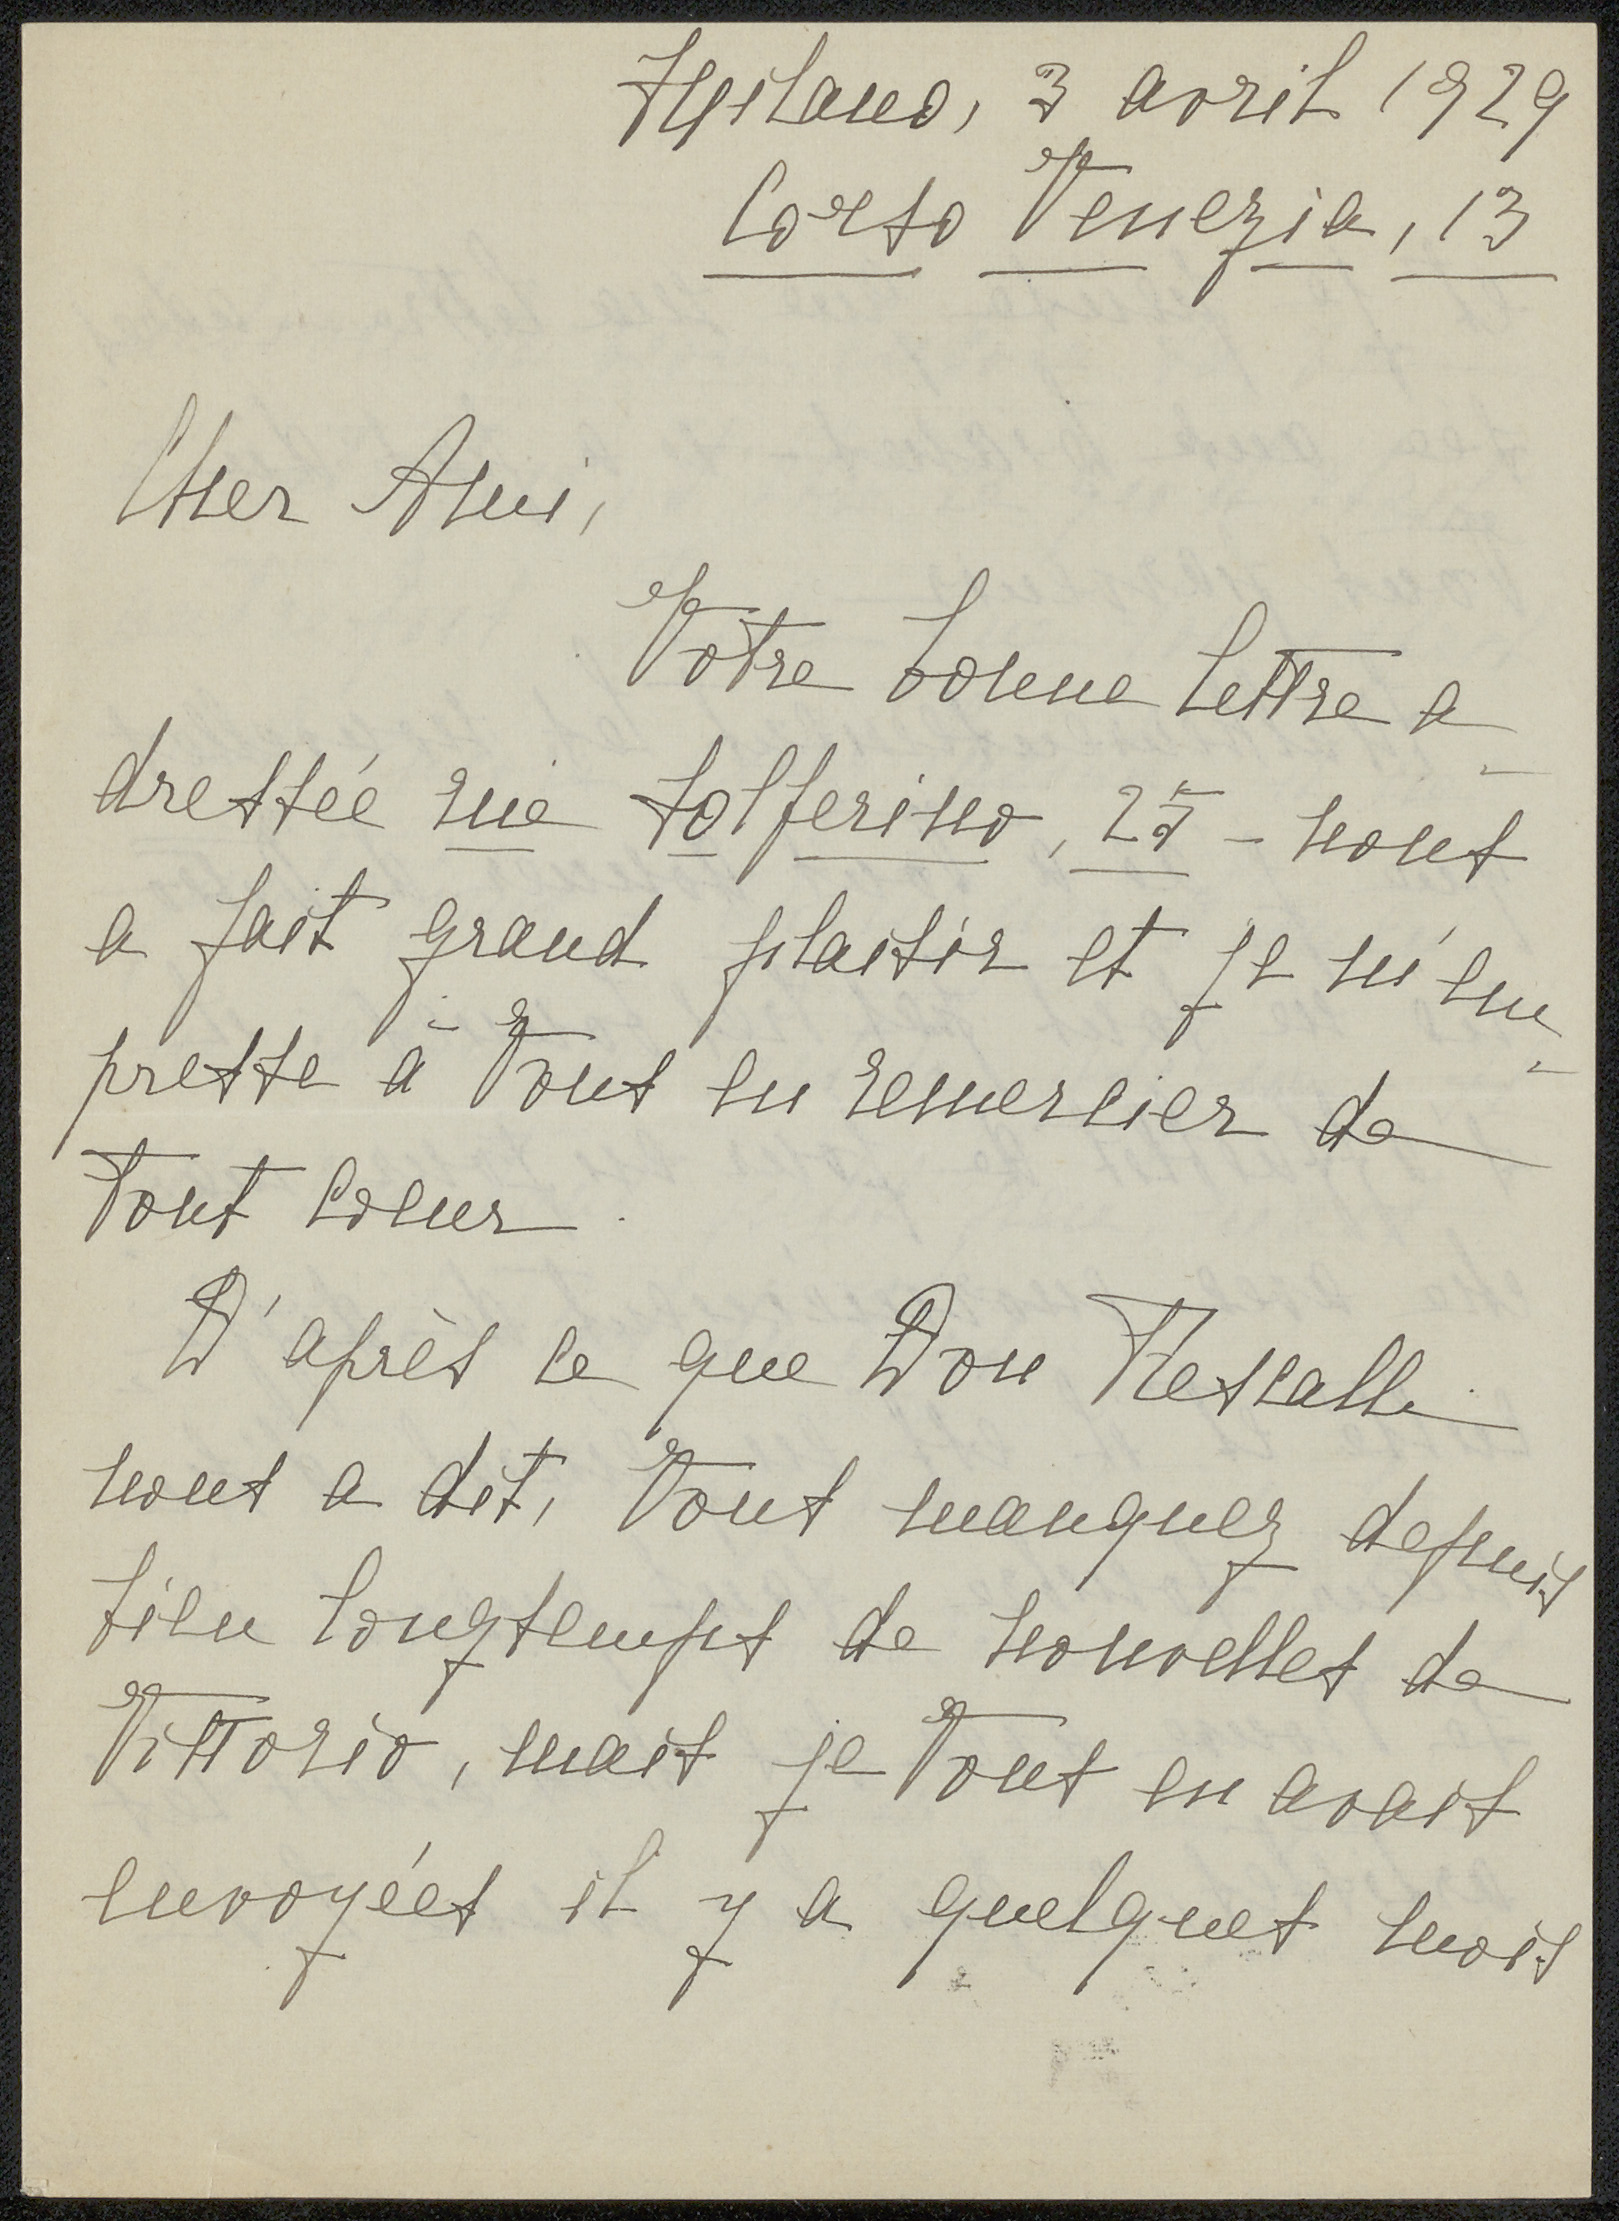 Milano, 3 avril 1929
Corso Venezia, 13
Cher Ami,
Votre bonne lettre a-
dressée rue Solferino, 25 - nous
a fait grand plaisir et je m'em-
presse à Vous en remercier de
tout coeur.
D'après ce que Don
nous a dit, Vous manquez depuis
bien longtemps de nouvelles de
Vittorio, mais je Vous en avais
envoyées il y a quelques mois